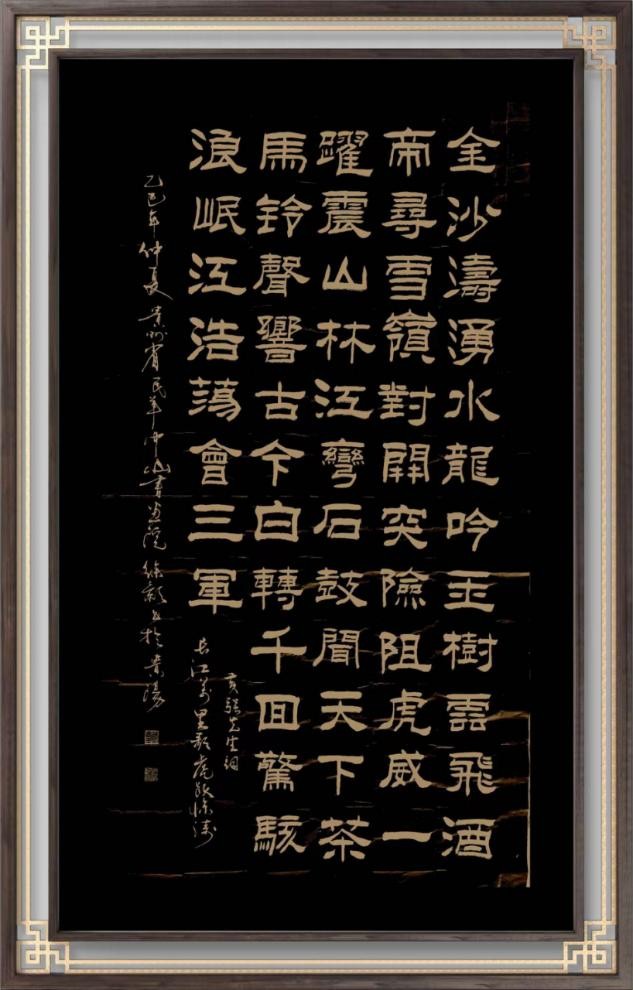 金沙濤湧水龍吟玉樹雲飛酒
帝尋雪嶺對開突險阻虎威一
躍震山林江彎石鼓聞天下茶
馬鈴聲響古今白轉千回驚駭
浪岷江浩蕩會三軍
先生詞
長江萬里歌虎
乙巳年仲夏貴州省民革中山書畫院徐書於貴陽